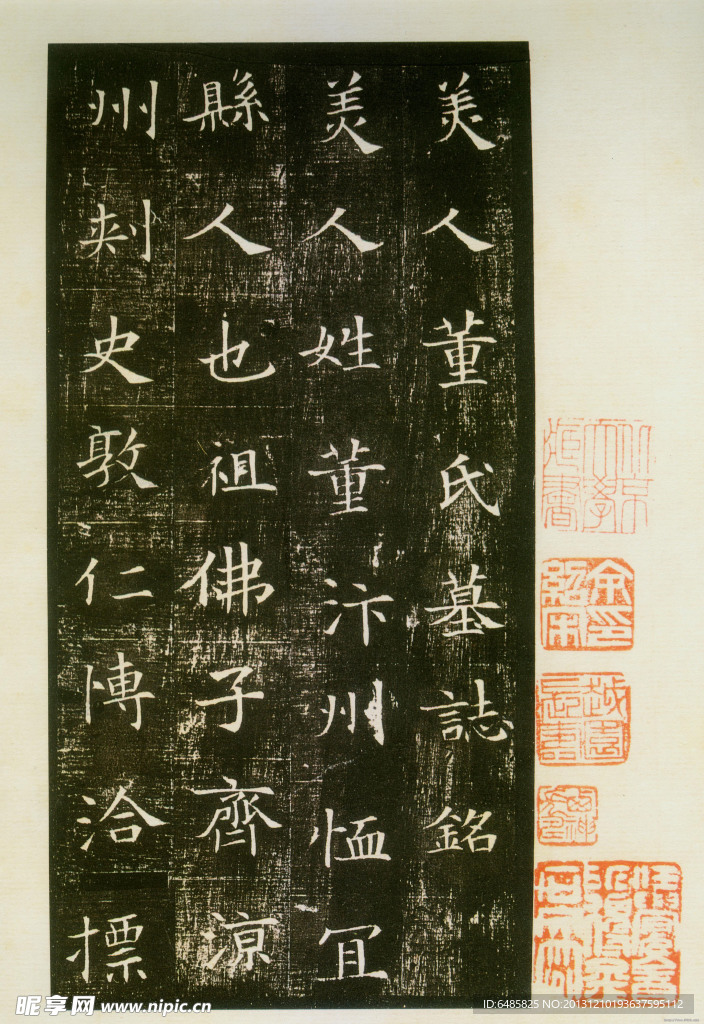 美人董氏墓誌銘
美人姓董汴州恤冝
縣人也祖佛子齊涼
州刾史敦仁愽洽標
余印紹宋
昵享网 www.nipic.cn
ID:6485825 NO:20131210193637595112